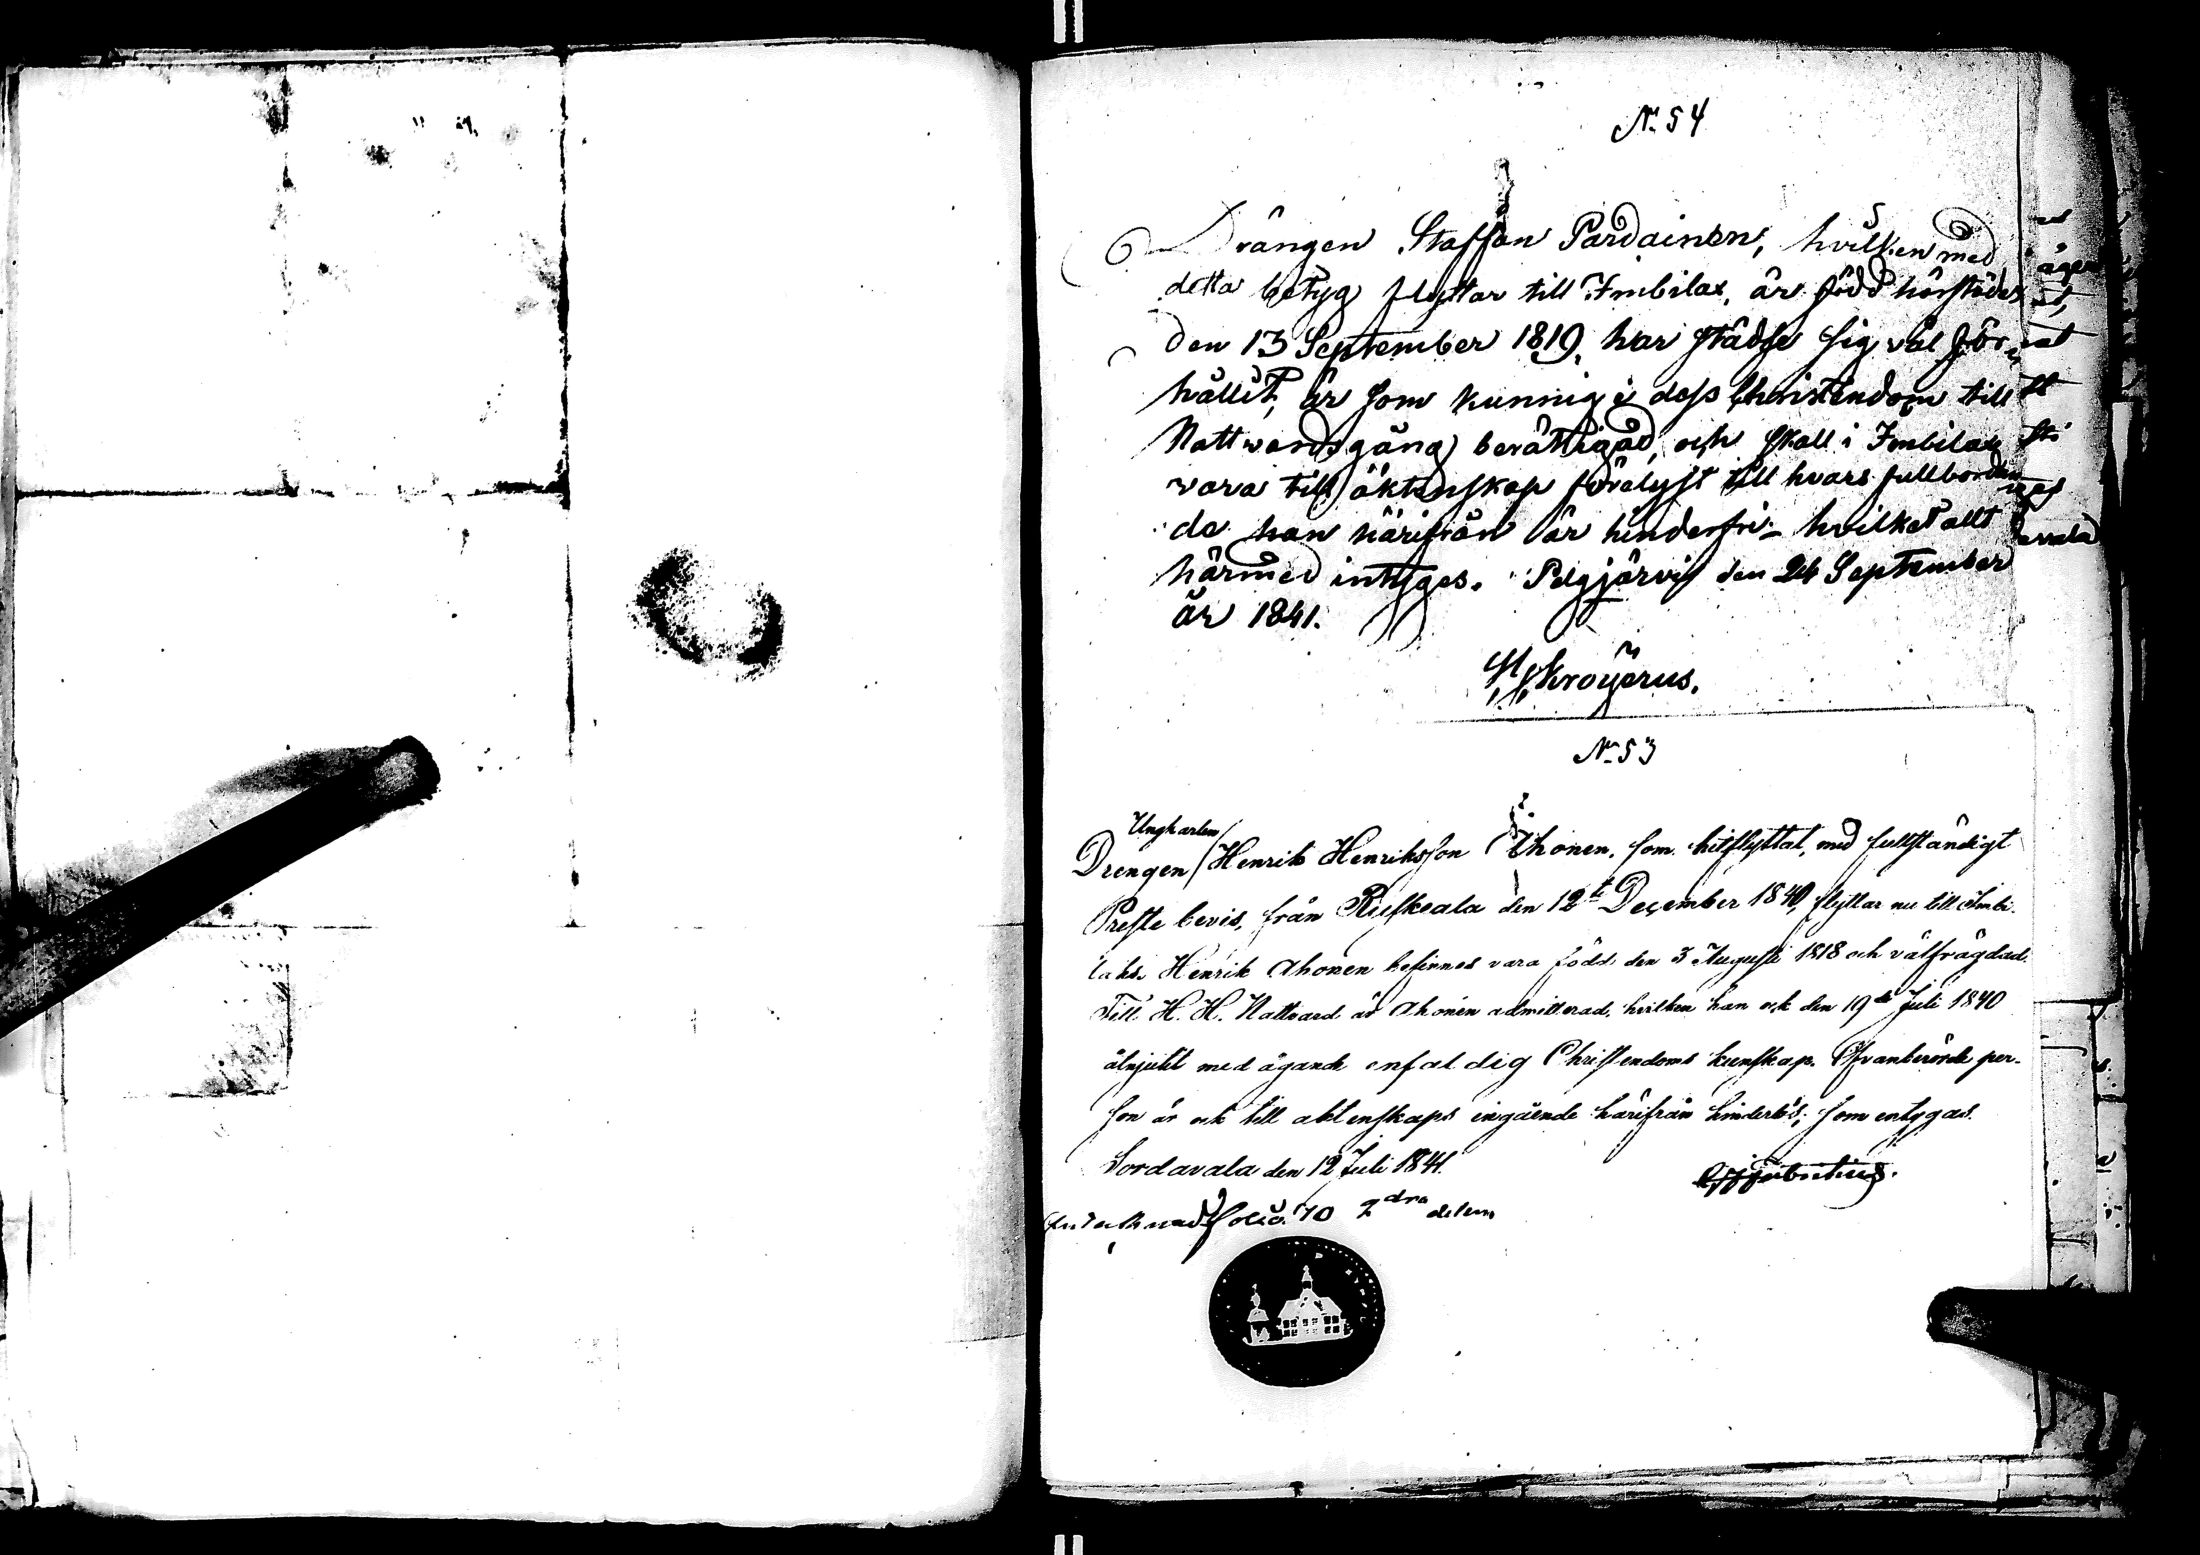 N: 54
Drängen Staffan Pardainen, hvilken med
detta betyg flyttar till Imbilax, är född härstädes
den 13 September 1819, har städse sig väl för-
hållit, är som kunnig i dess Christendom till
Nattvardsgång berättigad, och skall i Imbilax
vara till äktenskap förelyst till hvars fullbordan
de han härifrån är hinderfri - hvilket allt
härmed intygas. Pelgjärvi den 24 September
år 1841.
Kroijerus.
N: 53
Ungkarlen
Drengen Henrik Henriksson Ahonen, som hitflyttat, med fullständigt
Preste bevis, från Ruskeala den 12te December 1840, flyttar nu till Imbi-
laks. Henrik Ahonen befinnes vara född den 3 Augusti 1818 och välfrägdad.
Till H. H. Nattvard är Ahonen admitterad, hvilken han ock den 19de Juli 1840
åtnjutit med ägande enfaldig Christendoms kunskap. Ofvanberörde per-
son är ock till äktenskaps ingående härifrån hinderlös; som intygas.
Sordavala den 12 Juli 1841.
folio. 70 2dra delen